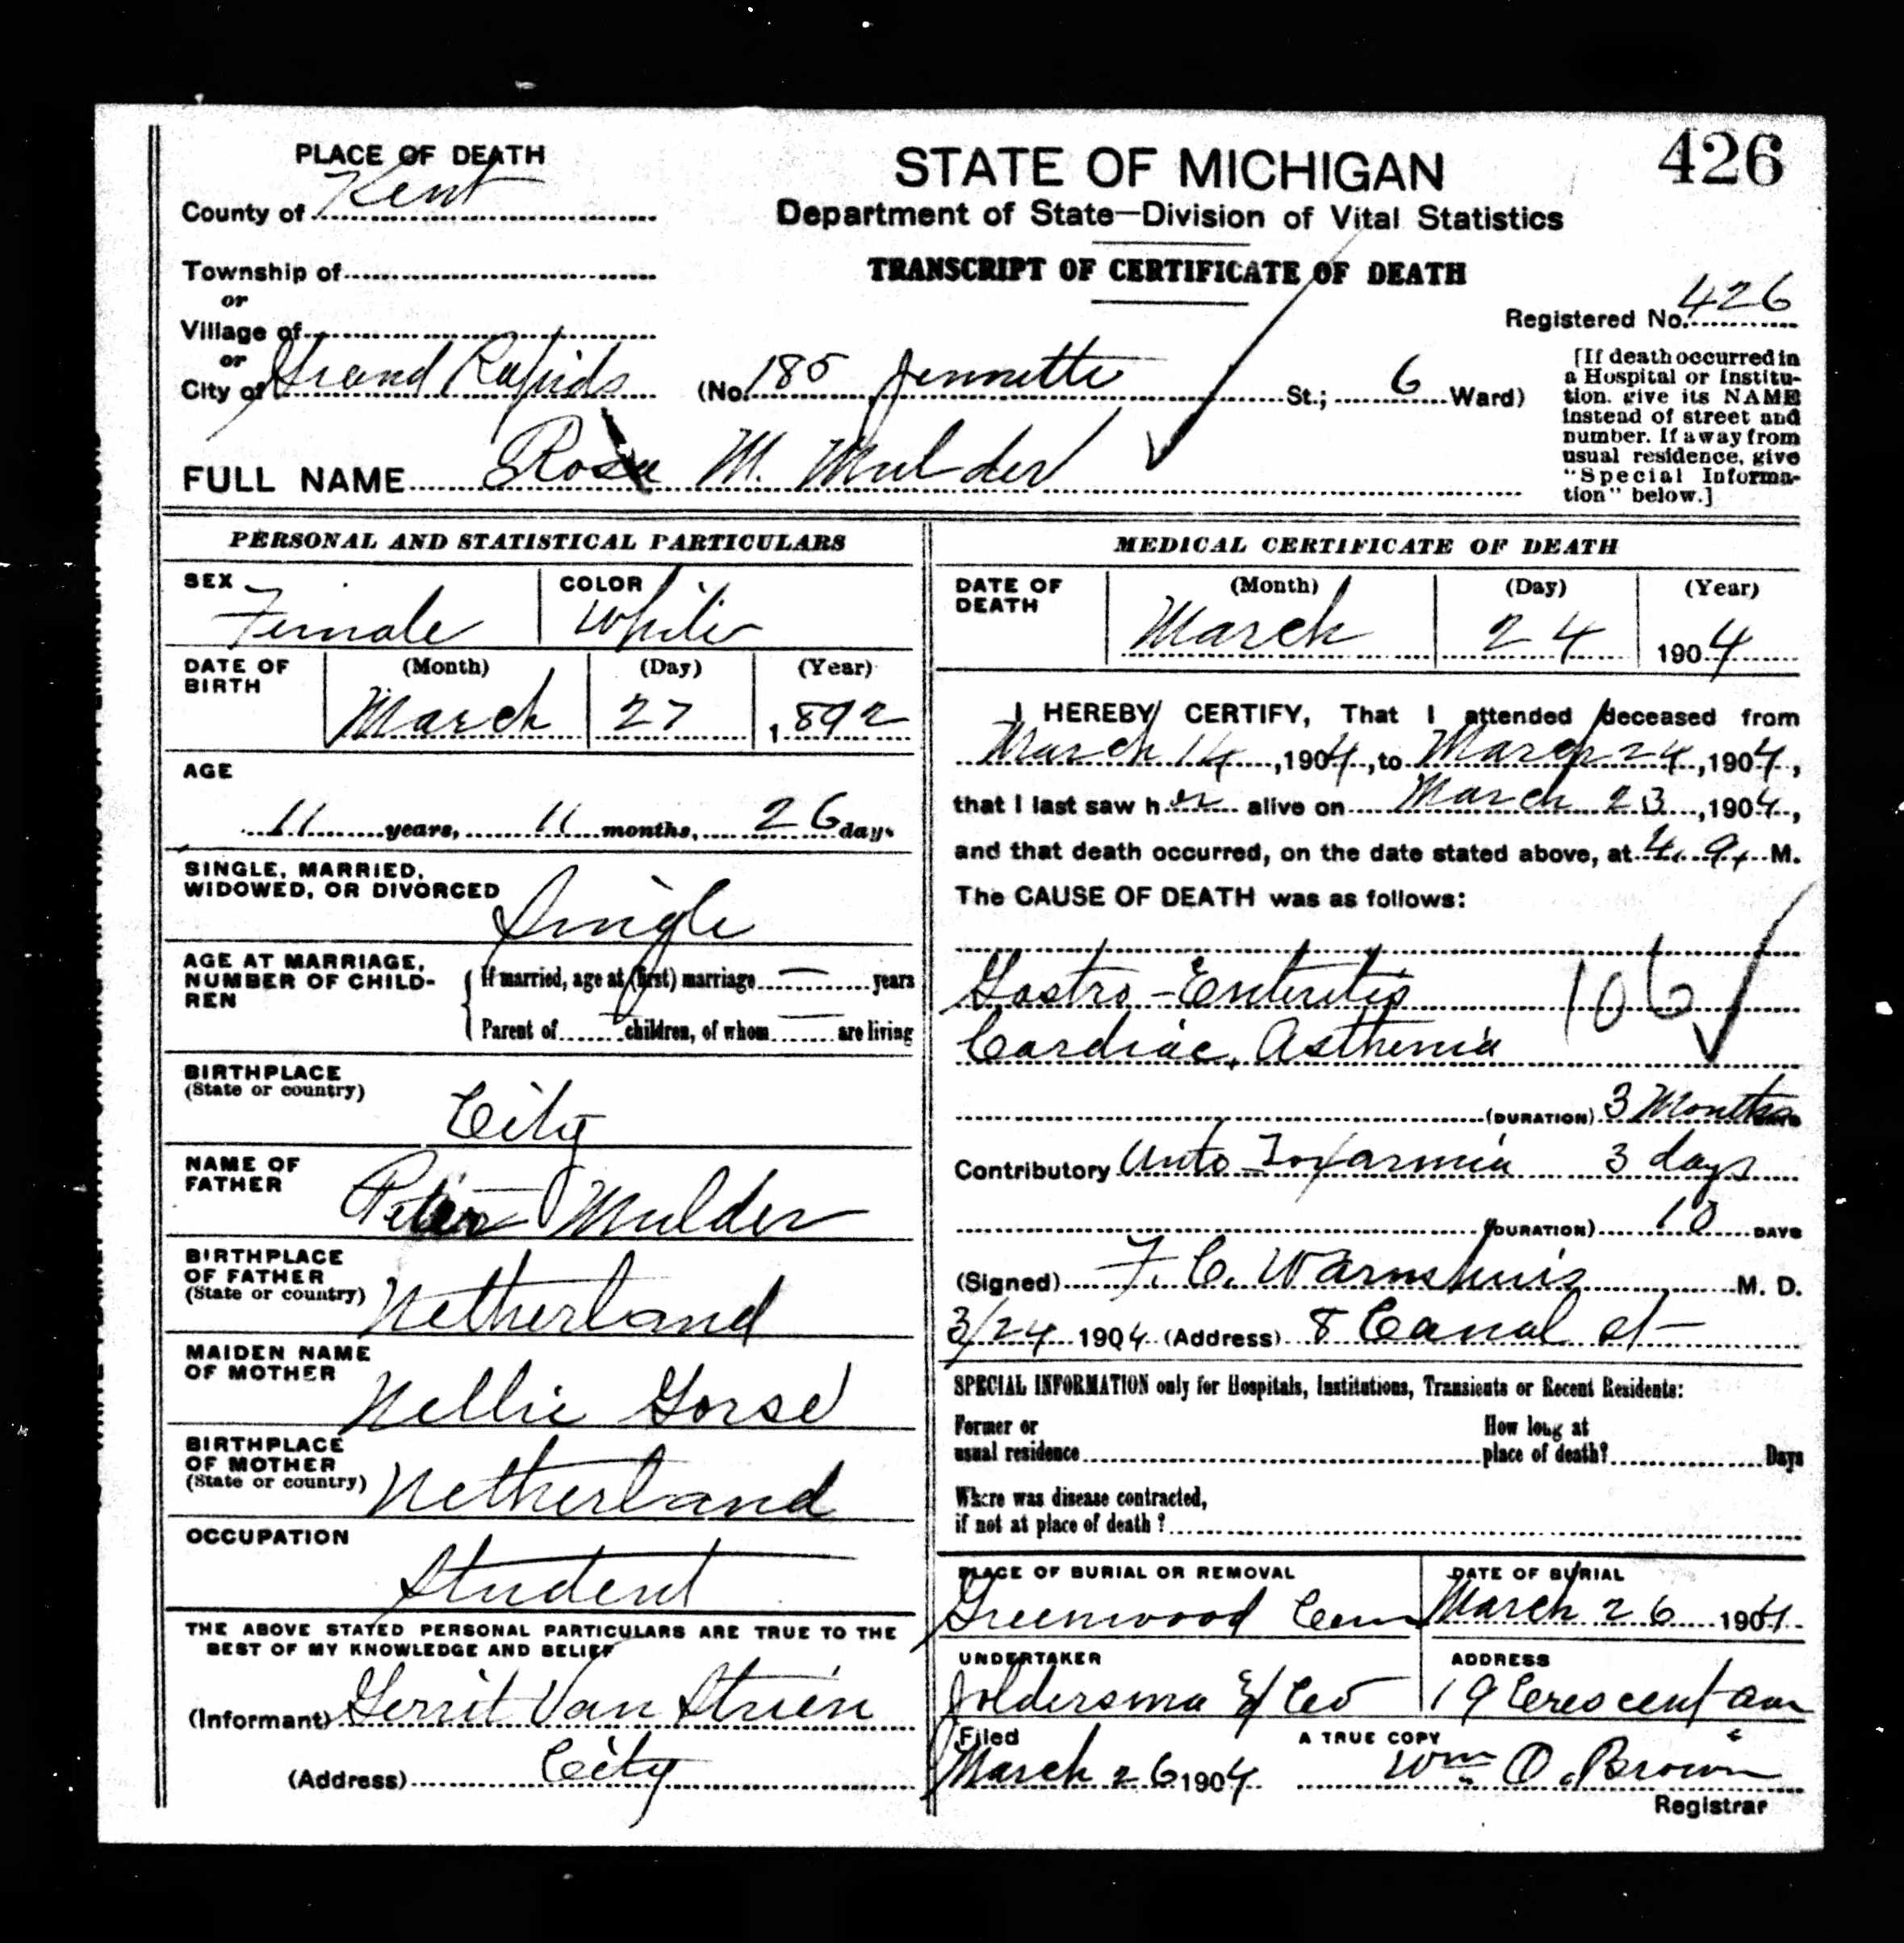 426
PLACE OF DEATH
County of Kent
Township of
or
Village of
or
City of Grand Rapids
STATE OF MICHIGAN
Department of State—Division of Vital Statistics
TRANSCRIPT OF CERTIFICATE OF DEATH
Registered No. 426
(No. 185 Jennette St.; 6 Ward)
[If death occurred in
a Hospital or Institu-
tion, give its NAME
instead of street and
number. If away from
usual residence, give
"Special Informa-
tion" below.]
FULL NAME Rosa M. Mulder
PERSONAL AND STATISTICAL PARTICULARS
SEX Female
COLOR White
DATE OF BIRTH
(Month) (Day) (Year)
March 27 1892
AGE
11 years, 11 months, 26 days
SINGLE, MARRIED,
WIDOWED, OR DIVORCED
Single
AGE AT MARRIAGE,
NUMBER OF CHILD-
REN
If married, age at (first) marriage — years
Parent of — children, of whom — are living
BIRTHPLACE
(State or country)
City
NAME OF
FATHER
Peter Mulder
BIRTHPLACE
OF FATHER
(State or country)
Netherland
MAIDEN NAME
OF MOTHER
Nellie Gorse
BIRTHPLACE
OF MOTHER
(State or country)
Netherland
OCCUPATION
Student
THE ABOVE STATED PERSONAL PARTICULARS ARE TRUE TO THE
BEST OF MY KNOWLEDGE AND BELIEF
(Informant) Gerrit Van Strien
(Address) City
MEDICAL CERTIFICATE OF DEATH
DATE OF
DEATH
(Month) (Day) (Year)
March 24 1904
I HEREBY CERTIFY, That I attended deceased from
March 14, 1904, to March 24, 1904,
that I last saw her alive on March 23, 1904,
and that death occurred, on the date stated above, at 4. M.
The CAUSE OF DEATH was as follows:
Gastro-Enteritis 106
Cardiac, Asthenia
(DURATION) 3 Months
Contributory Auto Toxaemia 3 days
(DURATION) 10 DAYS
(Signed) F. C. Warnshuis M. D.
3/24 1904 (Address) 8 Canal st
SPECIAL INFORMATION only for Hospitals, Institutions, Transients or Recent Residents:
Former or
usual residence
How long at
place of death? Days
Where was disease contracted,
if not at place of death?
PLACE OF BURIAL OR REMOVAL
Greenwood Cem
DATE OF BURIAL
March 26 1904
UNDERTAKER
Joldersma & Co
ADDRESS
19 Crescent ave
Filed
March 26 1904
A TRUE COPY
Wm O. Brown
Registrar